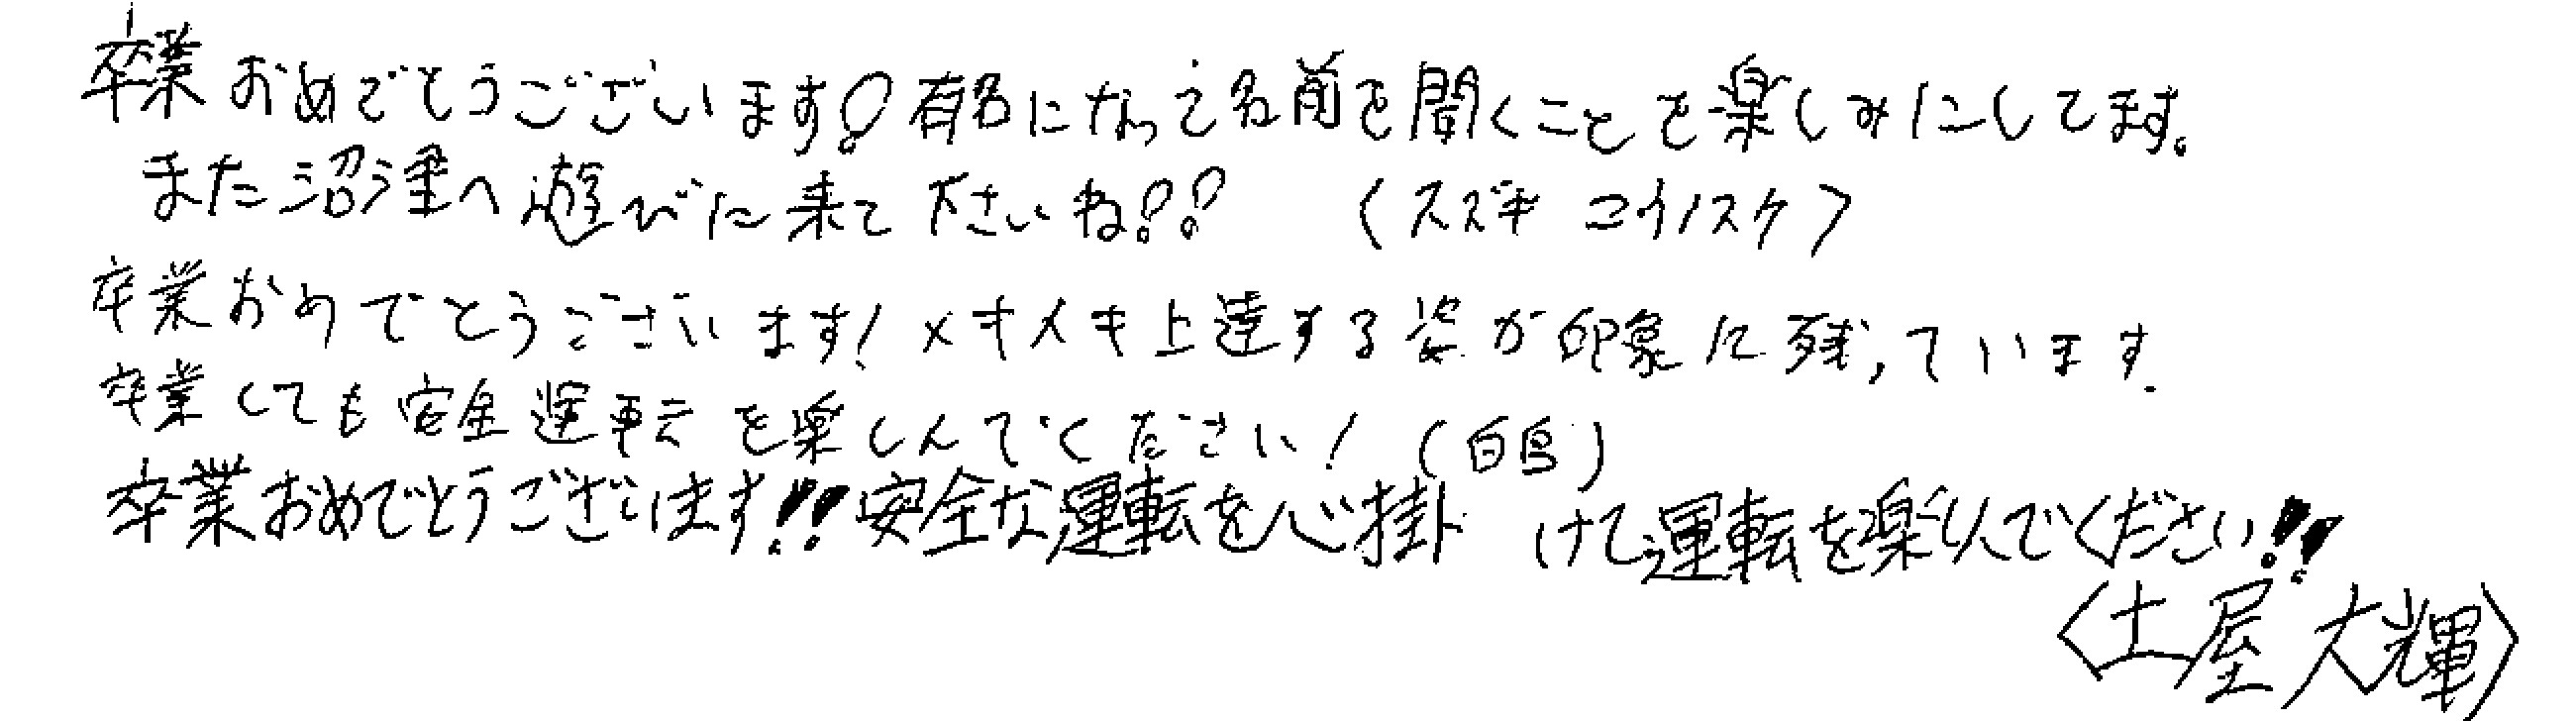 卒業おめでとうございます!有名になって名前を聞くことを楽しみにしてます。
また沼津へ遊びに来て下さいね!!　〈スズキ コウノスケ〉
卒業おめでとうございます!メキメキ上達する姿が印象に残っています.
卒業しても安全運転を楽しんでください!(白鳥)
卒業おめでとうございます!!安全な運転を心掛けて運転を楽しんでください!!
〈土屋大輝〉